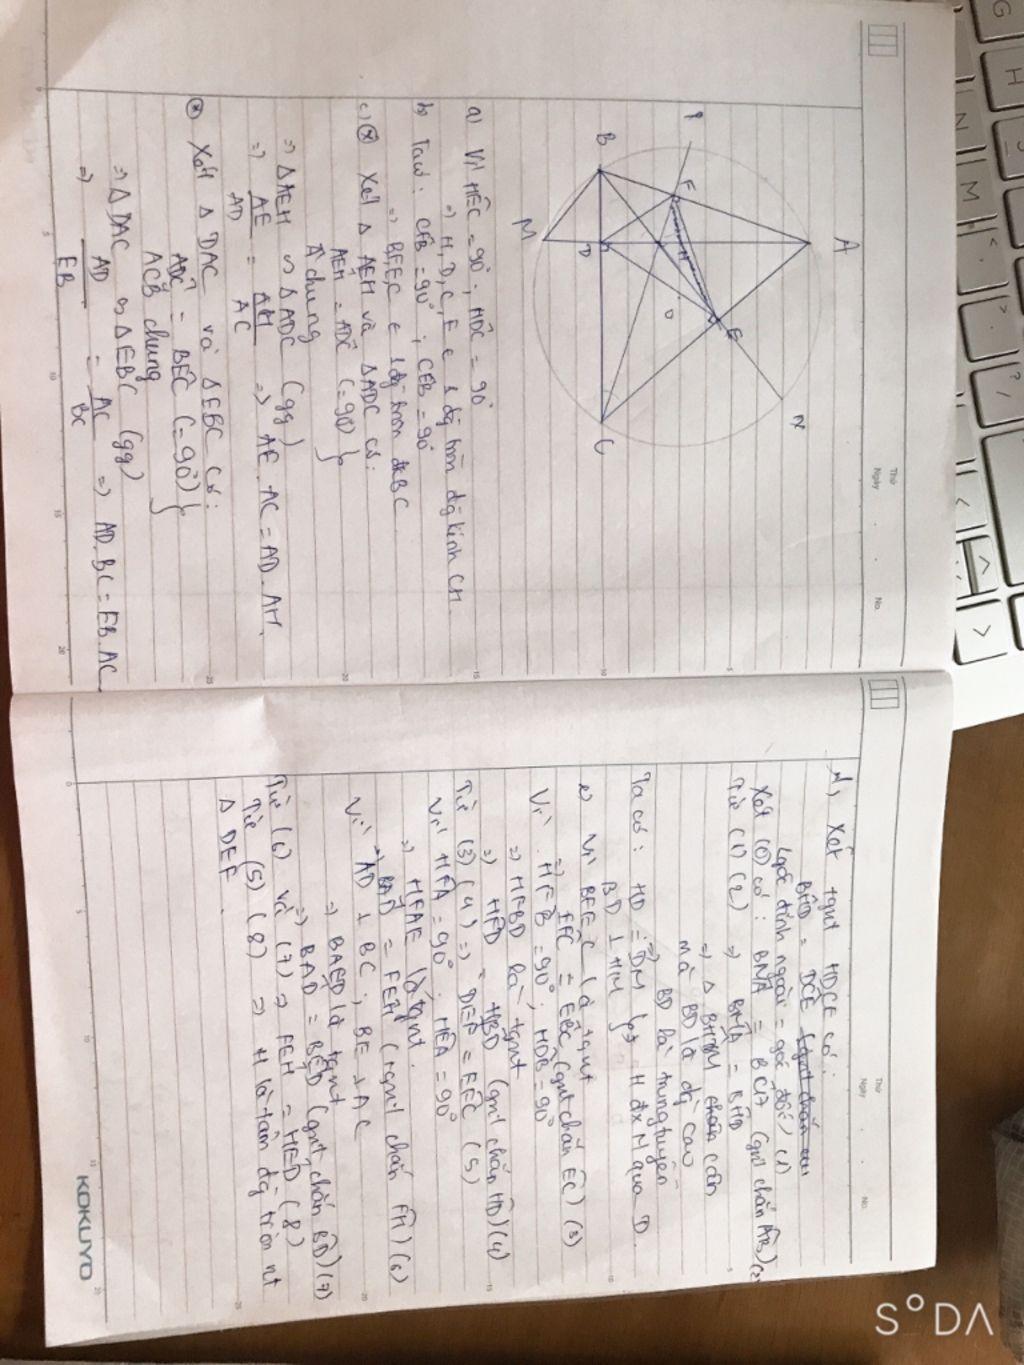 Thứ
Ngày
No.
A
B
C
D
E
F
H
O
M
N
P
a) Vì HÊC = 90°; HDC = 90°
=> H, D, C, E ∈ 1 đg tròn đg kính CH
b) Ta có: CFB = 90°; CEB = 90°
=> B,F,E,C ∈ 1 đg tròn đk BC.
c) * Xét Δ AEH và Δ ADC có:
AEH = ADC (= 90°) }
Â chung
=> Δ AEH ∽ Δ ADC (gg)
=> AE/AD = AH/AC => AE.AC = AD.AH.
* Xét Δ DAC và Δ EBC có:
ADC = BEC (= 90°) }
ACB chung
=> Δ DAC ∽ Δ EBC (gg)
=> AD/EB = AC/BC => AD.BC = EB.AC
Thứ
Ngày
No.
d, Xét tgnt HDCE có:
BHD = DCE
(góc đỉnh ngoài = góc đối) (1)
Xét (O) có: BMA = BCA (gnt chắn AB) (2)
Từ (1) (2) => BMA = BHD
=> Δ BHM cân
mà BD là đg cao
=> BD là trung tuyến
Ta có: HD = DM } => H đx M qua D.
BD ⊥ HM
e) Vì BFEC là tgnt
=> FFC = EBC (gnt chắn EC) (3)
Vì HFB = 90°; HDB = 90°
=> HFBD là tgnt
=> HFD = HBD (gnt chắn HD) (4)
Từ (3) (4) => DEF = EFC (5)
Vì HFA = 90°; HEA = 90°
=> HFAE là tgnt.
=> BAD = FEH (gnt chắn FH) (6)
Vì AD ⊥ BC; BE ⊥ AC
=> BAED là tgnt
=> BAD = BED (gnt chắn BD) (7)
Từ (6) và (7) => FEH = HED (8)
Từ (5) (8) => H là tâm đg tròn nt
Δ DEF.
KOKUYO
SODA